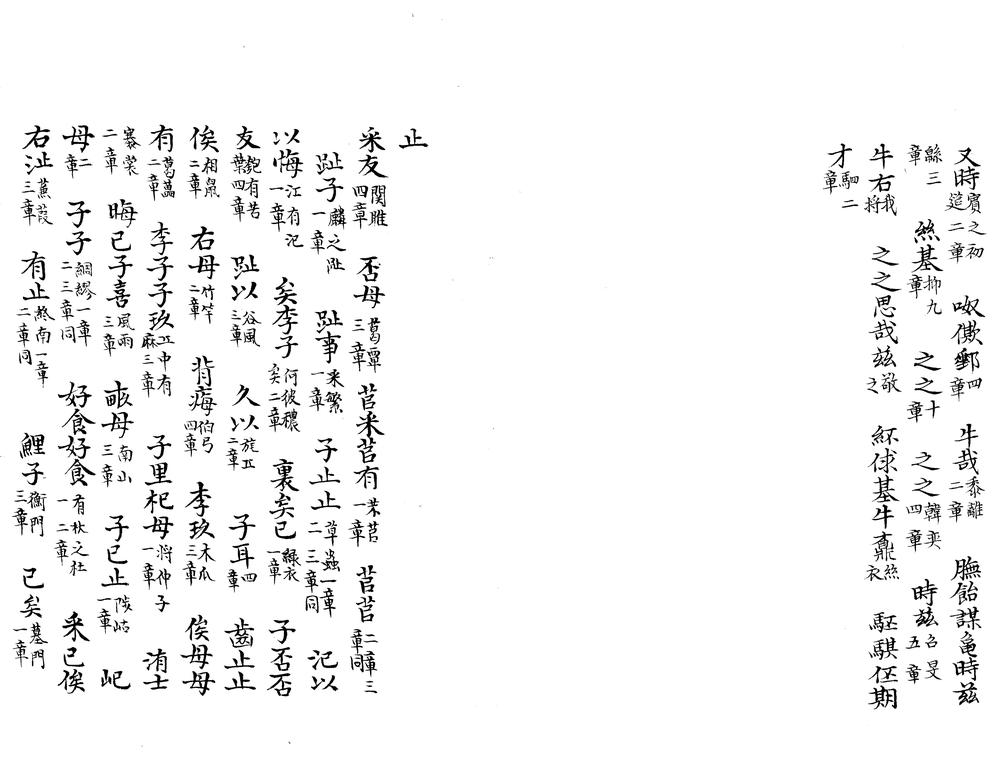 又時賓之初筵二章 呶僛郵四章 牛哉黍離二章 膴飴謀龜時茲
緜三章 絲基抑九章 之之十章 之之韓奕四章 時茲召旻五章
牛右我將 之之思哉茲敬之 紑俅基牛鼒絲衣 駓騏伾期
才駉二章
止
采友關雎四章 否母葛覃三章 苢采苢有芣苢一章 苢苢二章三章同
趾子麟之趾一章 趾事采繁一章 子止止草蟲一章二三章同 汜以
以悔江有汜一章 矣李子何彼穠矣二章 裏矣已綠衣一章 子否否
友匏有苦葉四章 趾以谷風三章 久以旄丘二章 子耳四章 齒止止
俟相鼠二章 右母竹竿二章 背痗伯兮四章 李玖木瓜三章 俟母母
有葛藟二章 李子子玖丘中有麻三章 子里杞母將仲子一章 洧士
褰裳二章 晦已子喜風雨三章 畝母南山三章 子已止陟岵一章 屺
母二章 子子綢繆一章二三章同 好食好食有杕之杜一二章 采已俟
右沚蒹葭三章 有止終南一章二章同 鯉子衡門三章 已矣墓門一章